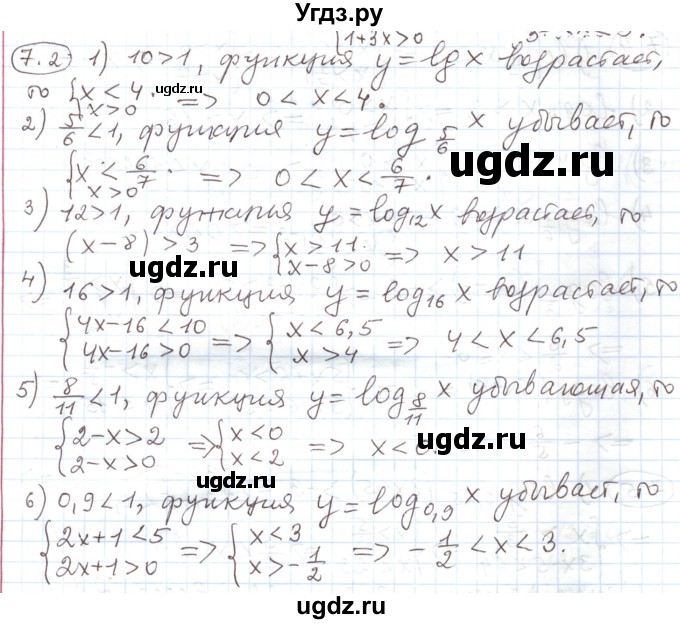 Угдз.ру
1+3x>0
7.2 1) 10>1, функция y=lg x возрастает,
то {x<4. x>0 => 0<x<4.
2) 5/6<1, функция y=log_{5/6} x убывает, то
{x<6/7. x>0 => 0<x<6/7.
ugdz.ru
3) 12>1, функция y=log_{12} x возрастает, то
(x-8)>3 => {x>11. x-8>0 => x>11
ugdz.ru
4) 16>1, функция y=log_{16} x возрастает, то
{4x-16<10 4x-16>0 => {x<6,5 x>4 => 4<x<6,5
ugdz.ru
5) 8/11<1, функция y=log_{8/11} x убывающая, то
{2-x>2 2-x>0 => {x<0 x<2 => x<0.
ugdz.ru
6) 0,9<1, функция y=log_{0,9} x убывает, то
{2x+1<5 2x+1>0 => {x<3 x>-1/2 => -1/2<x<3.
ugdz.ru
ugdz.ru